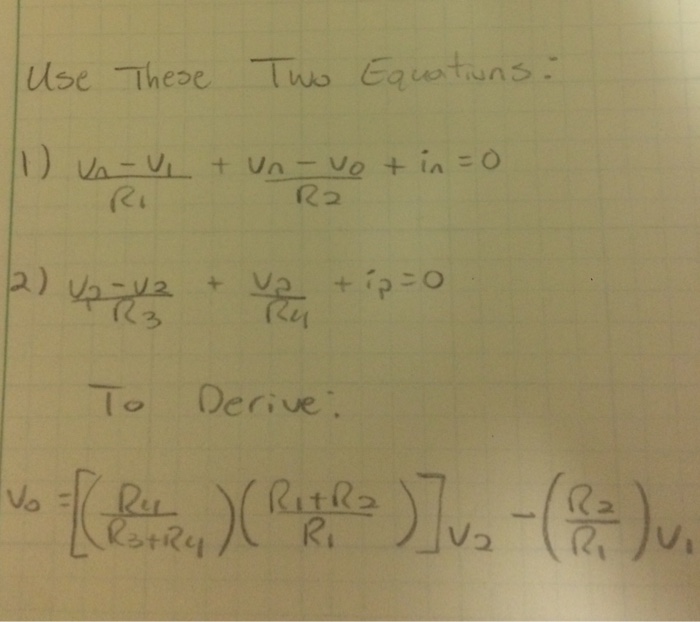 Use These Two Equations:
1) (vn - v1)/R1 + (vn - vo)/R2 + in = 0
2) (vp - v2)/R3 + vp/R4 + ip = 0
To Derive:
vo = [(R4/(R3+R4))((R1+R2)/R1)]v2 - (R2/R1)v1